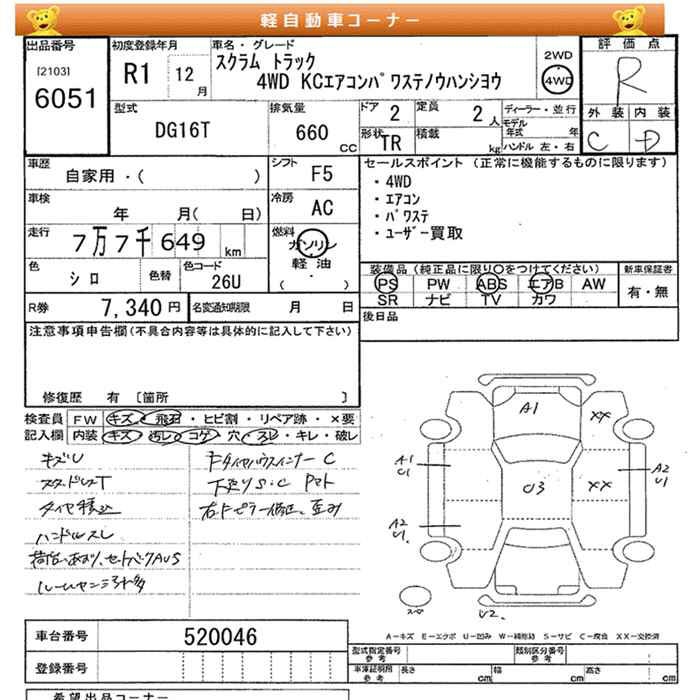 軽自動車コーナー
出品番号
[2103]
6051
初度登録年月
R1 12月
車名・グレード
スクラム トラック
4WD KCエアコンパワステノウハンシヨウ
2WD
4WD
評価点
R
外装 内装
C D
型式
DG16T
排気量
660 CC
ドア 2
定員 2人
形状 TR
積載 kg
ディーラー・並行
モデル年式 年
ハンドル 左・右
車歴
自家用・( )
シフト F5
セールスポイント(正常に機能するものに限ります)
・4WD
・エアコン
・パワステ
・ユーザー買取
車検
年 月( 日)
冷房 AC
走行
7万7千649 km
燃料
ガソリン
軽・油
・( )
色
シロ
色替
色コード
26U
装備品(純正品に限り○をつけてください)
PS PW ABS エアB AW
SR ナビ TV カワ
新車保証書
有・無
R券 7,340円
名変通知期限 月 日
後日品
注意事項申告欄(不具合内容等は具体的に記入して下さい)
修復歴 有 [箇所 ]
検査員記入欄
FW キズ・飛石・ヒビ割・リペア跡・×要
内装 キズ・汚レ・コゲ・穴・スレ・キレ・破レ
キズU
スタッドレスT
タイヤ積込
ハンドルスレ
下廻りS・C
A1
XX
A1
U1
A2
U1
U3
XX
A2
U1
スペ
U2
A-キズ E-エクボ U-凹み W-補修跡 S-サビ C-腐食 XX-交換済
車台番号 520046
登録番号
型式指定番号
参考
類別区分番号
参考
車庫証明用
参考
長さ cm
幅 cm
高さ cm
希望出品コーナー